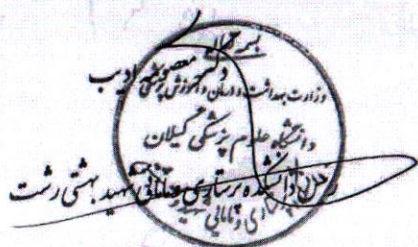 دکتر معصومه ادیب
وزارت بهداشت و درمان و آموزش پزشکی
دانشگاه علوم پزشکی گیلان
دانشکده پرستاری و مامایی شهید بهشتی رشت